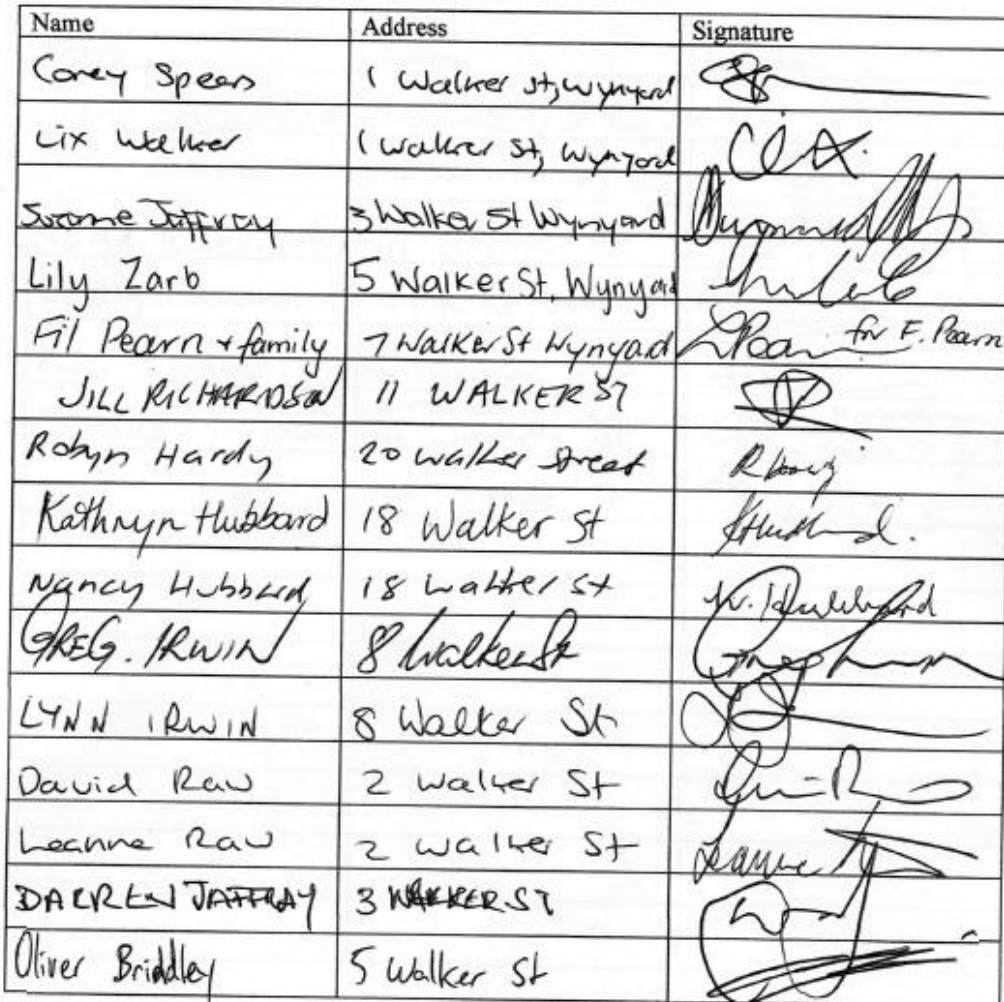 Name Address Signature
Corey Spears 1 Walker St, Wynyard
Lix Walker 1 Walker St, Wynyard
Suzanne Jaffray 3 Walker St Wynyard
Lily Zarb 5 Walker St, Wynyard
Fil Pearn + family 7 Walker St Wynyard for F. Pearn
JILL RICHARDSON 11 WALKER ST
Robyn Hardy 20 Walker Street
Kathryn Hubbard 18 Walker St
Nancy Hubbard 18 Walker St N. Hubbard
GREG. IRWIN 8 Walker St
LYNN IRWIN 8 Walker St
David Raw 2 Walker St
Leanne Raw 2 Walker St Leanne
DARREN JAFFRAY 3 WALKER ST
Oliver Briddley 5 Walker St